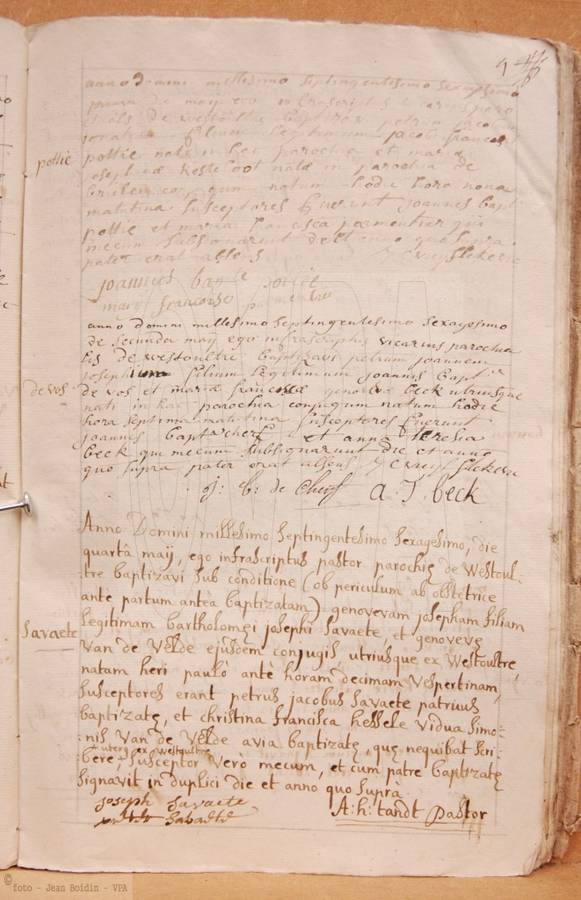 anno domini millesimo septingentesimo sexagesimo
prima de maij ego infrascriptus
de westoultre baptizavi petrum jacob
filium legitimum jacobi francis
pottié
pottié nati in hac parochia et mar
josephæ kesteloot natæ in parochia de
conjugum natum hodie hora nona
matutina susceptores fuerunt joannes bapt
pottié et maria francisca parmentier qui
mecum subsignarunt die et anno quo supra
pater erat absens
joannies ba pottié
marie francoise parmentier
anno domini millesimo septingentesimo sexagesimo
de secunda maij ego infrascriptus vicarius parochia
lis de westoultre baptizavi petrum joannem
josephum filium legitimum joannis bapt
de vos
de vos et mariæ franciscæ genovevæ beck utriusque
nati in hac parochia conjugum natum hodie
hora septima matutina susceptores fuerunt
joannes bapt decherf et anna theresia
beck qui mecum subsignarunt die et anno
quo supra pater erat absens
j: b: de cherf a. T. beck
Anno Domini millesimo septingentesimo sexagesimo, die
quarta maij, ego infrascriptus pastor parochię de Westoul-
tre baptizavi sub conditione (ob periculum ab obstetrice
ante partum antea baptizatam) genovevam josepham filiam
Savaete
legitimam bartholomęi josephi Savaete, et genovevę
Van de Velde ejusdem conjugis utriusque ex Westoultre,
natam heri paulò antè horam decimam vespertinam,
susceptores erant petrus jacobus Savaete patrius
baptizatę, et christina francisca hessele vidua simo-
nis Van de Velde avia baptizatę, quę nequibat scri-
uterq ex westoultre
bere, susceptor verò mecum, et cum patre baptizatę
signavit in duplici die et anno quo suprà
joseph Savaete
Savaete
A: h: tandt Pastor
© foto - Jean Boidin - VPA